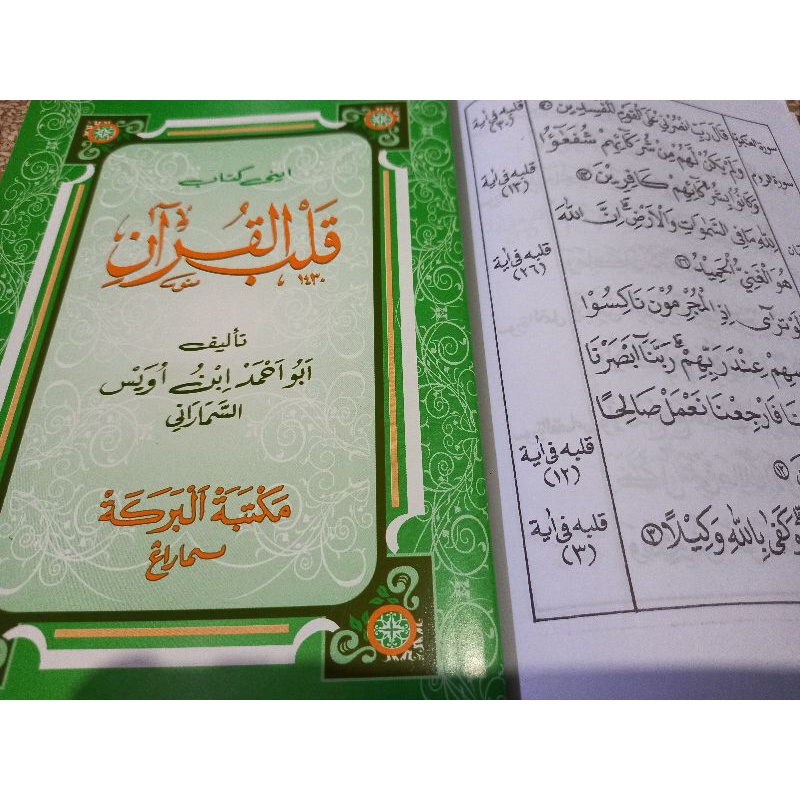 اينى كتاب
قَلْبُ الْقُرْآنِ
١٤٣٠
تأليف
اَبُو اَحْمَدْ اِبْنُ اُوَيْسْ
السَّمَارَانِي
مَكْتَبَةْ اَلْبَرَكَةْ
سماراڠ
قَالَ رَبِّ انْصُرْنِي عَلَى الْقَوْمِ الْمُفْسِدِيْنَ
قلبه فى اية
(٣٠)
سورة الروم
وَلَمْ يَكُنْ لَهُمْ مِنْ شُرَكَائِهِمْ شُفَعَاؤُا
وَكَانُوْا بِشُرَكَائِهِمْ كَافِرِيْنَ ١٣
قلبه فى اية
(١٣)
لِلّٰهِ مَا فِى السَّمٰوَاتِ وَالْاَرْضِ اِنَّ اللّٰهَ
هُوَ الْغَنِيُّ الْحَمِيْدُ
قلبه فى اية
(٢٦)
تَرٰى اِذِ الْمُجْرِمُوْنَ نَاكِسُوْا
عِنْدَ رَبِّهِمْ رَبَّنَا اَبْصَرْنَا
فَارْجِعْنَا نَعْمَلْ صَالِحًا
١٢
قلبه فى اية
(١٢)
كَفٰى بِاللّٰهِ وَكِيْلًا ٣
قلبه فى اية
(٣)